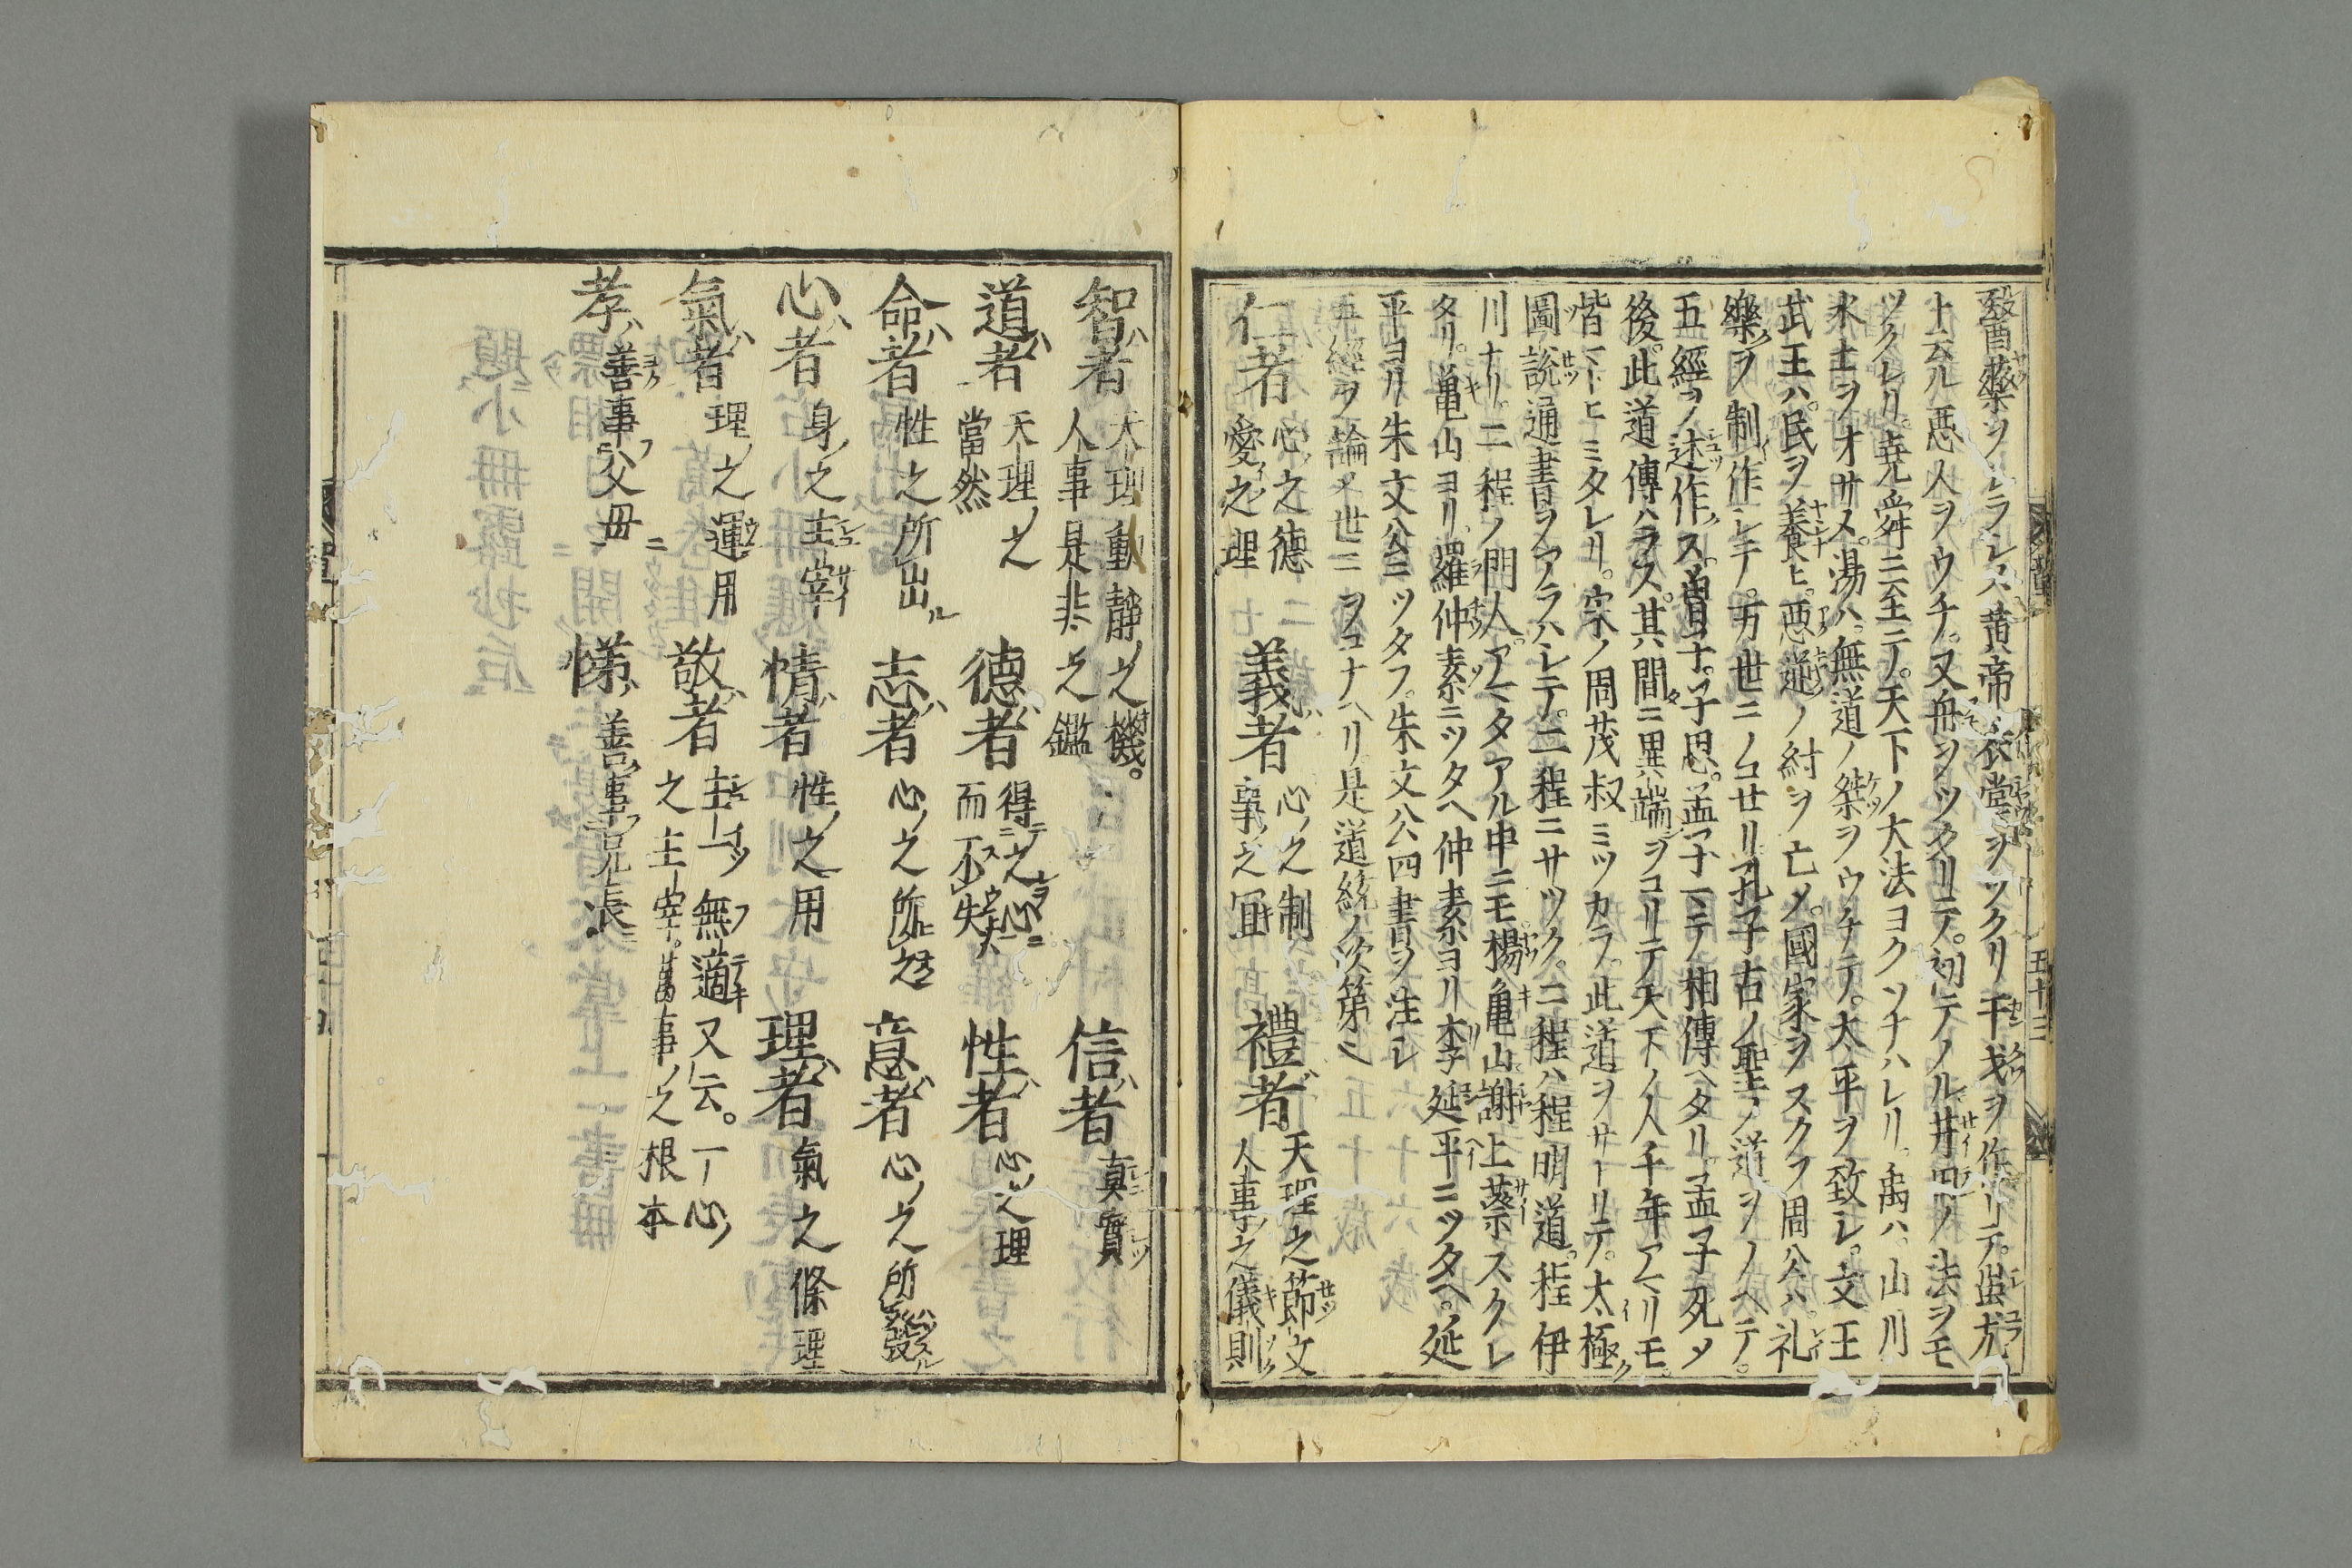 毉薬ヲシラシス黄帝衣裳ヲツクリ干戈ヲ作リテ。蚩尤
ト云ル悪人ヲウチ。又舟ヲツクリテ。初テノル井田ノ法ヲモ
ツクレリ。堯舜ニ至テノ。天下ノ大法ヨクソナハレリ。禹ハ。山川
水土ヲオサメ。湯ハ。無道ノ桀ヲウチテ。太平ヲ致シ。文王
武王ハ。民ヲ養ヒ。悪逆ノ紂ヲ亡メ。國家ヲスクフ周公ハ。礼
樂ヲ制作シテ。万世ニノコセリ。孔子古ノ聖ノ道ヲノヘテ。
五經ヲ述作ス。曽子。子思。孟子マテ相傳ヘタリ。孟子死メ
後。此道傳ハラス。其間ニ異端ヲコリテ天下ノ人千年アマリモ。
皆マトヒミタレリ。宋ノ周茂叔ミツカラ。此道ヲサトリテ。太極
圖説通書ヲアラハシテ。二程ニサツク。二程ハ程明道。程伊
川ナリ。二程ノ門人。アマタアル中ニモ楊亀山謝上蔡スクレ
タリ。亀山ヨリ。羅仲素ニツタヘ仲素ヨリ李延平ニツタヘ。延
平ヨリ朱文公ニツタフ。朱文公四書ヲ注シ
五經ヲ論メ世ニヲコナヘリ是道統ノ次第ミ
仁者 心之徳 愛之理 義者 心ノ之制 事ノ之冝 禮者 天理之節文 人事ノ之儀則
五十三
智者 天理動静ノ之機。 人事是非之鑑 信者 真實
道者 天理ノ之 當然 德者 得之心 而不失 性者 心之理
命者 性之所出 志者 心ノ之所之 意者 心ノ之所發
心者 身ノ之主宰 情者 性ノ之用 理者 氣之條理
氣者 理ノ之運用 敬者 主一無適又云。一心ノ 之主宰。萬事ノ之根本
孝 善事父母 悌 善事兄長